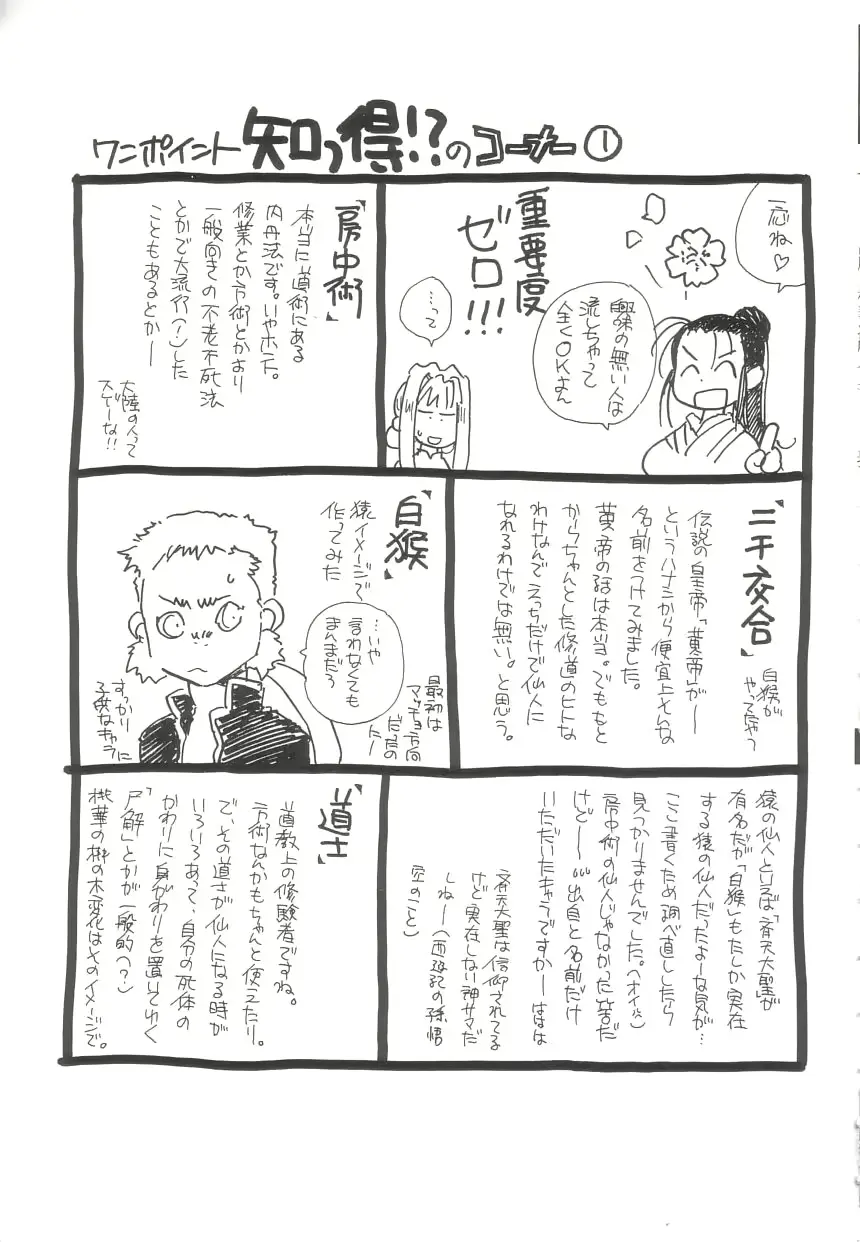 ワンポイント知っ得!?のコーナー①
一応ね♡
興味の無い人は
流しちゃって
全くOKよん
重要度
ゼロ!!!
…って
「房中術」
本当に道術にある
内丹法です。いやホンテ。
修業とか方術とかより
一般向きの不老不死法
とかで大流行(?)した
こともあるとかー
大陸の人って
スゲーな!!
「二千交合」
白猴が
やってたやつ
伝説の皇帝「黄帝」がー
というハナシから便宜上そんな
名前をつけてみました。
黄帝の話は本当。でももと
からちゃんとした修道のヒトな
わけなんでえっちだけで仙人に
なれるわけでは無い。と思う。
「白猴」
猿イメージで
作ってみた
…いや
言わなくても
まんまだろ
最初は
マッチョ方向
だったの
にー
すっかり
子供なキャラに
猿の仙人といえば「斉天大聖」が
有名だが「白猴」もたしか実在
する猿の仙人だったよーな気が…
ここ書くため調べ直ししたら
見つかりませんでした。(オイ)
房中術の仙人じゃなかった筈だ
けどー…出自と名前だけ
いただいたキャラですかーははは
斉天大聖は信仰されてる
けど実在しない神サマだ
しねー(西遊記の孫悟
空のこと)
「道士」
道教上の修験者ですね。
方術なんかもちゃんと使えたり。
で、その道士が仙人になる時が
いろいろあって、自分の死体の
かわりに身がわりを置いてゆく
「尸解」とかが一般的(?)
桃華の榊の木変化はそのイメージで。